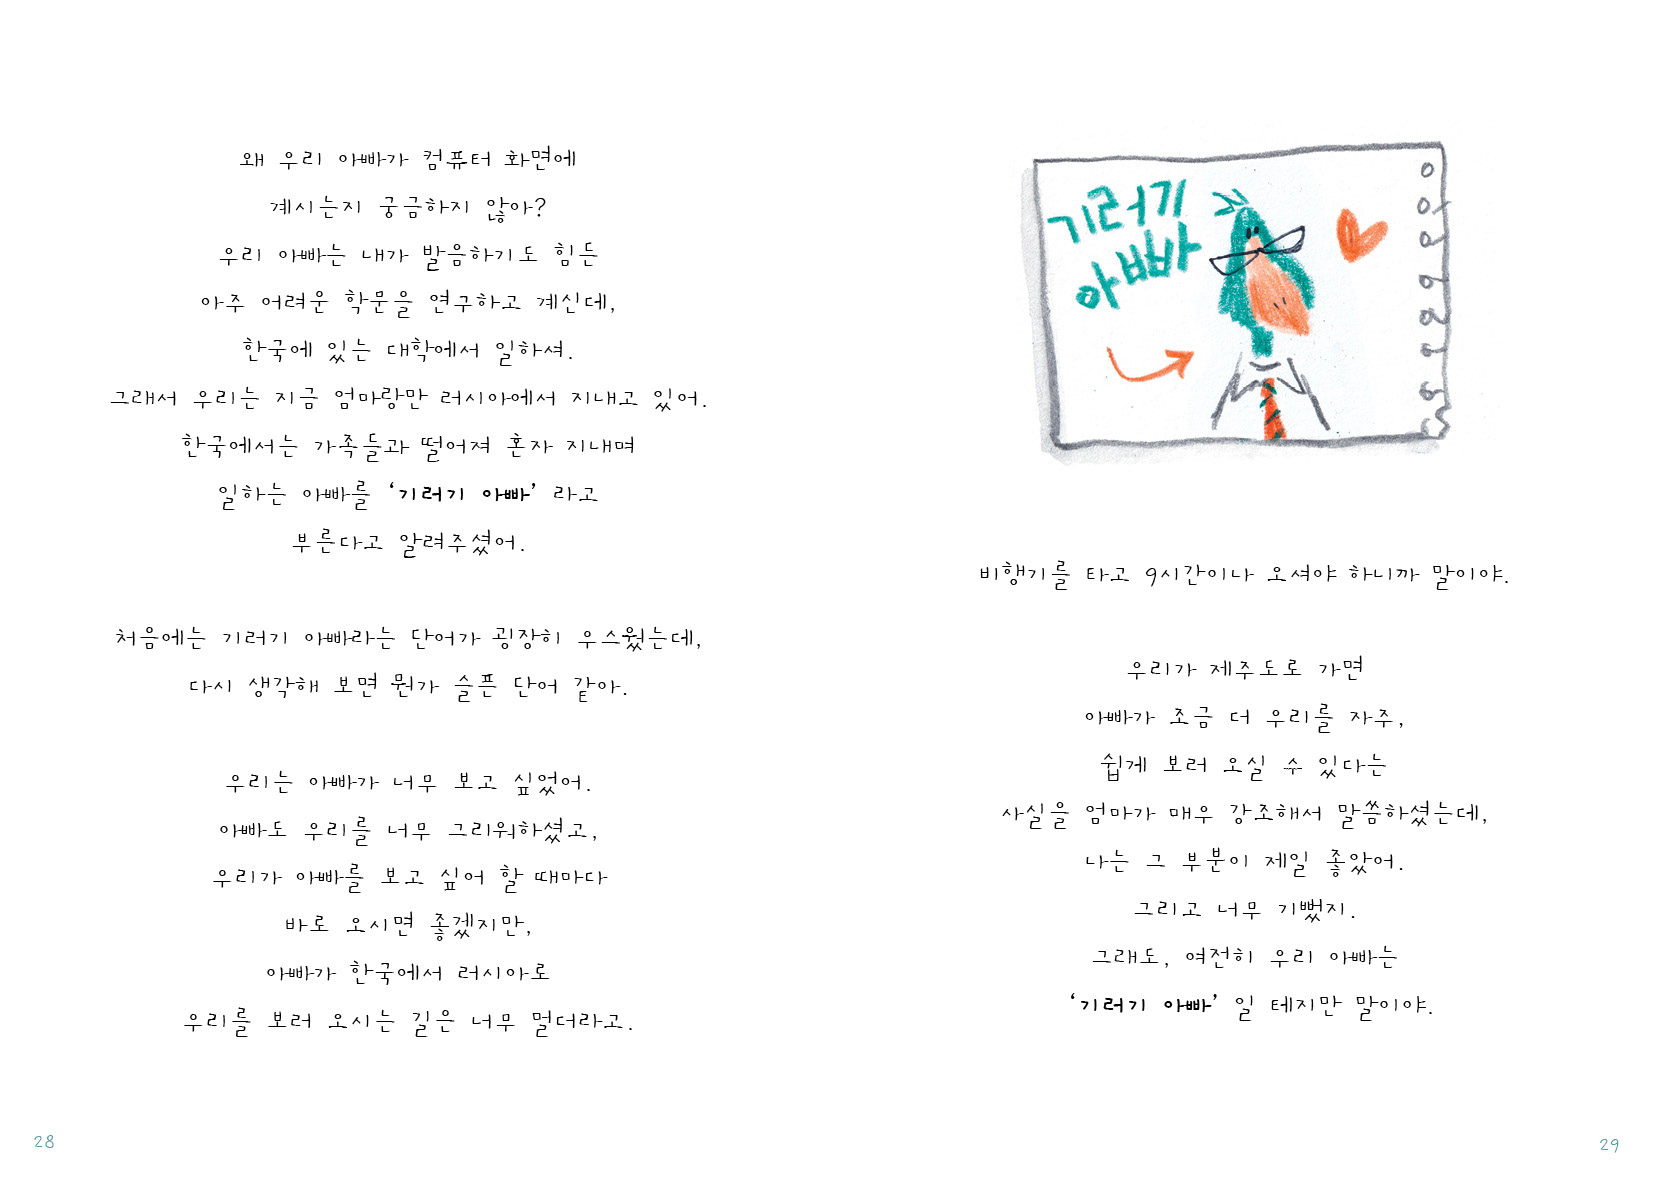 왜 우리 아빠가 컴퓨터 화면에
계시는지 궁금하지 않아?
우리 아빠는 내가 발음하기도 힘든
아주 어려운 학문을 연구하고 계신데,
한국에 있는 대학에서 일하셔.
그래서 우리는 지금 엄마랑만 러시아에서 지내고 있어.
한국에서는 가족들과 떨어져 혼자 지내며
일하는 아빠를 ‘기러기 아빠’ 라고
부른다고 알려주셨어.
처음에는 기러기 아빠라는 단어가 굉장히 우스웠는데,
다시 생각해 보면 뭔가 슬픈 단어 같아.
우리는 아빠가 너무 보고 싶었어.
아빠도 우리를 너무 그리워하셨고,
우리가 아빠를 보고 싶어 할 때마다
바로 오시면 좋겠지만,
아빠가 한국에서 러시아로
우리를 보러 오시는 길은 너무 멀더라고.
28
기러기
아빠
비행기를 타고 9시간이나 오셔야 하니까 말이야.
우리가 제주도로 가면
아빠가 조금 더 우리를 자주,
쉽게 보러 오실 수 있다는
사실을 엄마가 매우 강조해서 말씀하셨는데,
나는 그 부분이 제일 좋았어.
그리고 너무 기뻤지.
그래도, 여전히 우리 아빠는
‘기러기 아빠’ 일 테지만 말이야.
29